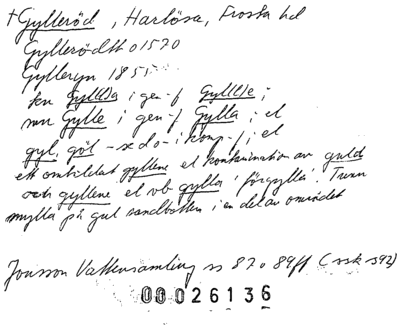 †Gylleröd, Harlösa, Frosta hd
Gyllerödth 01570
Gylleryn 185
kn Gyl(l)a i gen-f Gyl(l)e;
mn Gylle i gen-f Gylla; el
gyl, göl - se do - i komp-f; el
ett ombildat gyllene el kontamination av guld
och gyllene el vb gylla 'förgylla'. Tunn
mylla på gul sandbotten i en del av området
Jonsson Vattensamling ss 87 o 89ff (ssk s92)
00026136